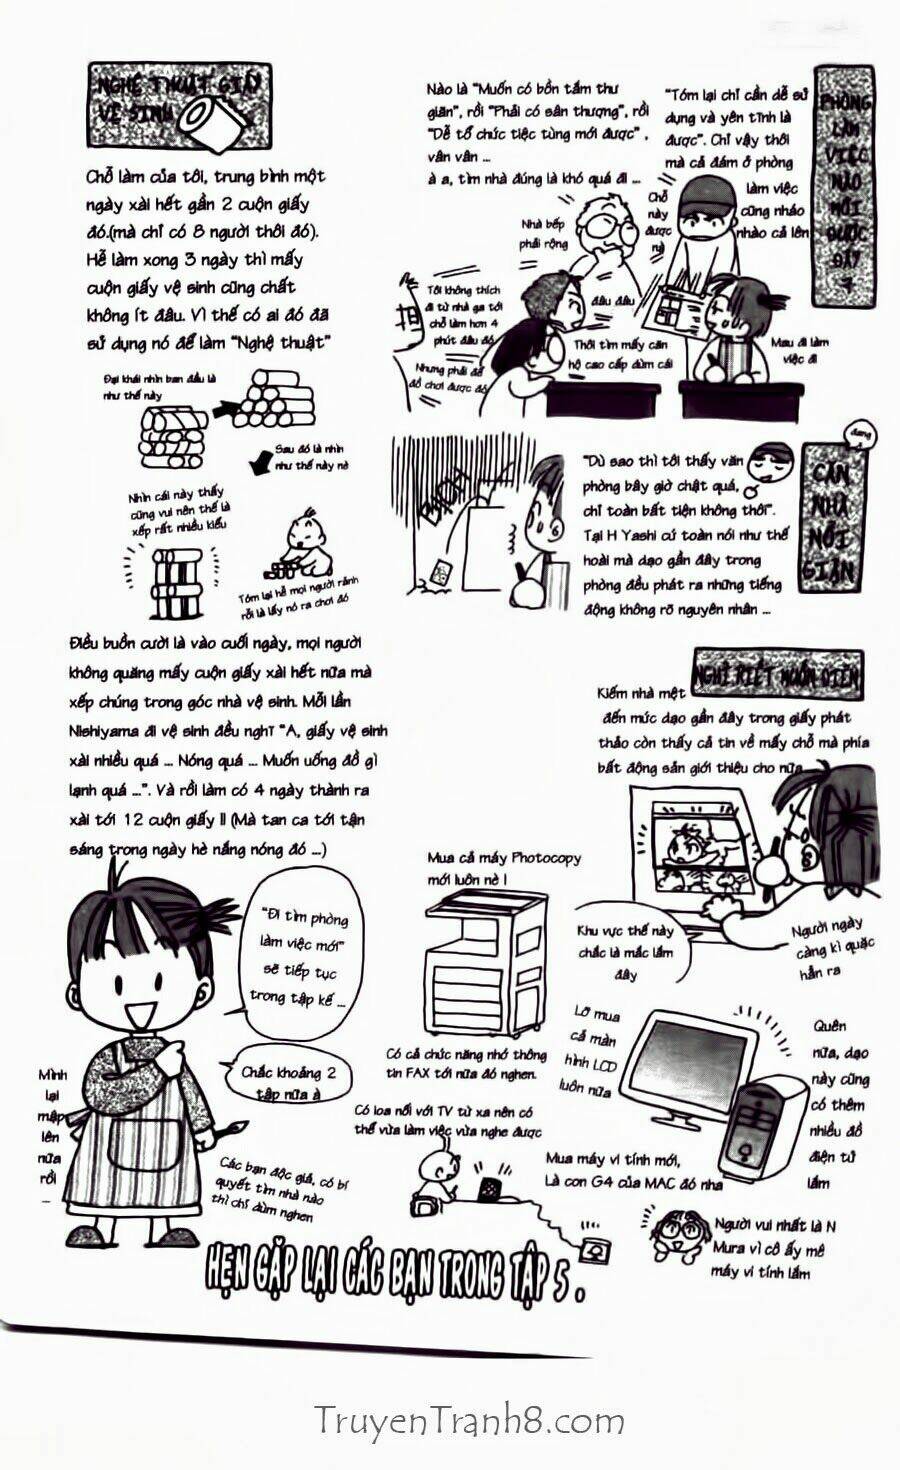 NGHỆ THUẬT GIẤY
VỆ SINH
Chỗ làm của tôi, trung bình một
ngày xài hết gần 2 cuộn giấy
đó.(mà chỉ có 8 người thôi đó).
Hễ làm xong 3 ngày thì mấy
cuộn giấy vệ sinh cũng chất
không ít đâu. Vì thế có ai đó đã
sử dụng nó để làm "Nghệ thuật"
Đại khái nhìn ban đầu là
như thế này
Sau đó là nhìn
như thế này nè
Nhìn cái này thấy
cũng vui nên thế là
xếp rất nhiều kiểu
Tóm lại hễ mọi người rảnh
rỗi là lấy nó ra chơi đó
Điều buồn cười là vào cuối ngày, mọi người
không quăng mấy cuộn giấy xài hết nữa mà
xếp chúng trong góc nhà vệ sinh. Mỗi lần
Nishiyama đi vệ sinh đều nghĩ "A, giấy vệ sinh
xài nhiều quá ... Nóng quá ... Muốn uống đồ gì
lạnh quá ...". Và rồi làm có 4 ngày thành ra
xài tới 12 cuộn giấy !! (Mà tan ca tới tận
sáng trong ngày hè nắng nóng đó ...)
"Đi tìm phòng
làm việc mới"
sẽ tiếp tục
trong tập kế ...
Chắc khoảng 2
tập nữa à
Mình
lại
mập
lên
nữa
rồi
...
Các bạn độc giả, có bí
quyết tìm nhà nào
thì chỉ dùm nghen
PHÒNG
LÀM
VIỆC
NÀO
MỚI
ĐƯỢC
ĐÂY
?
Nào là "Muốn có bồn tắm thư
giãn", rồi "Phải có sân thượng", rồi
"Dễ tổ chức tiệc tùng mới được" ,
vân vân ...
à a, tìm nhà đúng là khó quá đi ...
"Tóm lại chỉ cần dễ sử
dụng và yên tĩnh là
được". Chỉ vậy thôi
mà cả đám ở phòng
làm việc
cũng nháo
nhào cả lên
Nhà bếp
phải rộng
Chỗ
này
được
nè
Tôi không thích
đi từ nhà ga tới
chỗ làm hơn 4
phút đâu đó
đâu đâu
Nhưng phải để
đồ chơi được đó
Thôi tìm mấy căn
hộ cao cấp dùm cái
Mau đi làm
việc đi
CĂN
NHÀ
NỔI
GIẬN
đang
"Dù sao thì tôi thấy văn
phòng bây giờ chật quá,
chỉ toàn bất tiện không thôi".
Tại H Yashi cứ toàn nói như thế
hoài mà dạo gần đây trong
phòng đều phát ra những tiếng
động không rõ nguyên nhân ...
BẠCH
NGHĨ RIẾT MUỐN ĐIÊN
Kiếm nhà mệt
đến mức dạo gần đây trong giấy phát
thảo còn thấy cả tin về mấy chỗ mà phía
bất động sản giới thiệu cho nữa
Khu vực thế này
chắc là mắc lắm
đây
Người ngày
càng kì quặc
hẳn ra
Mua cả máy Photocopy
mới luôn nè !
Có cả chức năng nhớ thông
tin FAX tới nữa đó nghen.
Lỡ mua
cả màn
hình LCD
luôn nữa
Quên
nữa, dạo
này cũng
có thêm
nhiều đồ
điện tử
lắm
Có loa nối với TV từ xa nên có
thể vừa làm việc vừa nghe được
Mua máy vi tính mới,
Là con G4 của MAC đó nha
Người vui nhất là N
Mura vì cô ấy mê
máy vi tính lắm
HẸN GẶP LẠI CÁC BẠN TRONG TẬP 5 .
TruyenTranh8.com